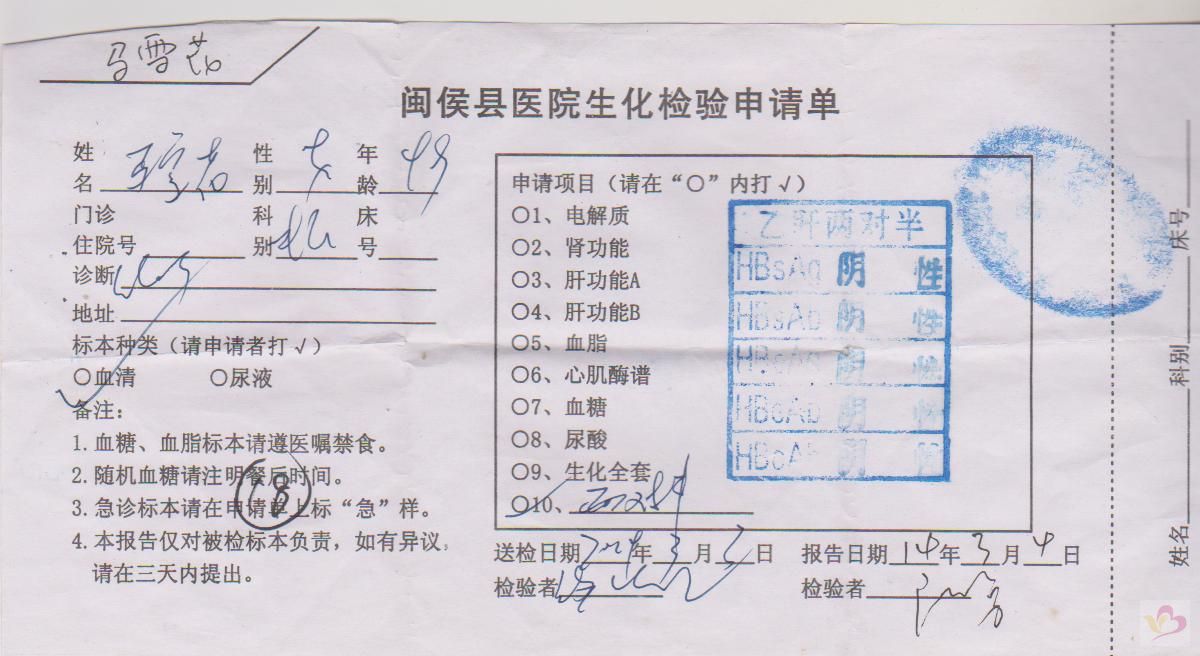 马雪茹
闽侯县医院生化检验申请单
姓名 性别 女 年龄
门诊住院号 科别 床号
诊断
地址
标本种类（请申请者打√）
○血清 ○尿液
备注：
1. 血糖、血脂标本请遵医嘱禁食。
2. 随机血糖请注明餐后时间。
3. 急诊标本请在申请单上标“急”样。
4. 本报告仅对被检标本负责，如有异议，
请在三天内提出。
18
申请项目（请在“○”内打√）
○1、电解质
○2、肾功能
○3、肝功能A
○4、肝功能B
○5、血脂
○6、心肌酶谱
○7、血糖
○8、尿酸
○9、生化全套
○10、
乙肝两对半
HBsAg 阴 性
HBsAb 阴 性
HBeAg 阴 性
HBeAb 阴 性
HBcAb 阴 性
送检日期 年 3 月 日
检验者
报告日期 14 年 3 月 4 日
检验者
姓名 科别 床号